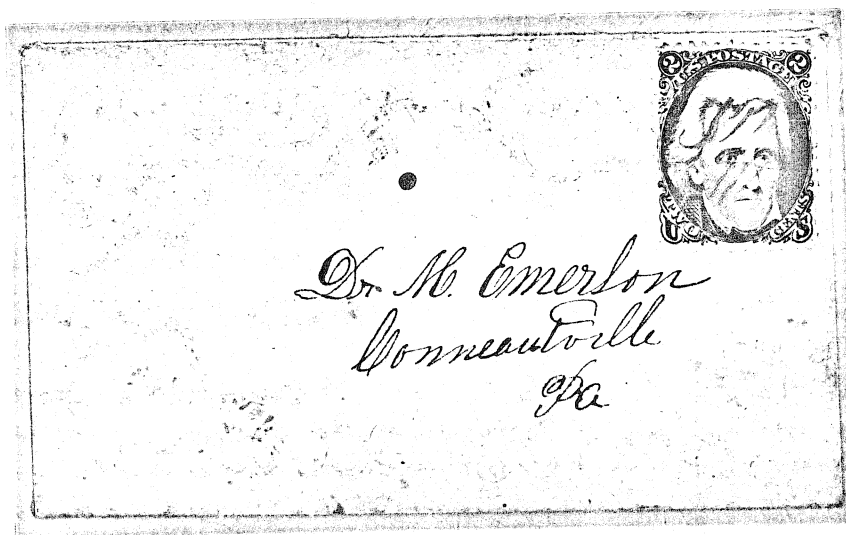 2 U.S. POSTAGE 2
U TWO CENTS S
Dr M. Emerson
Conneautville
Pa